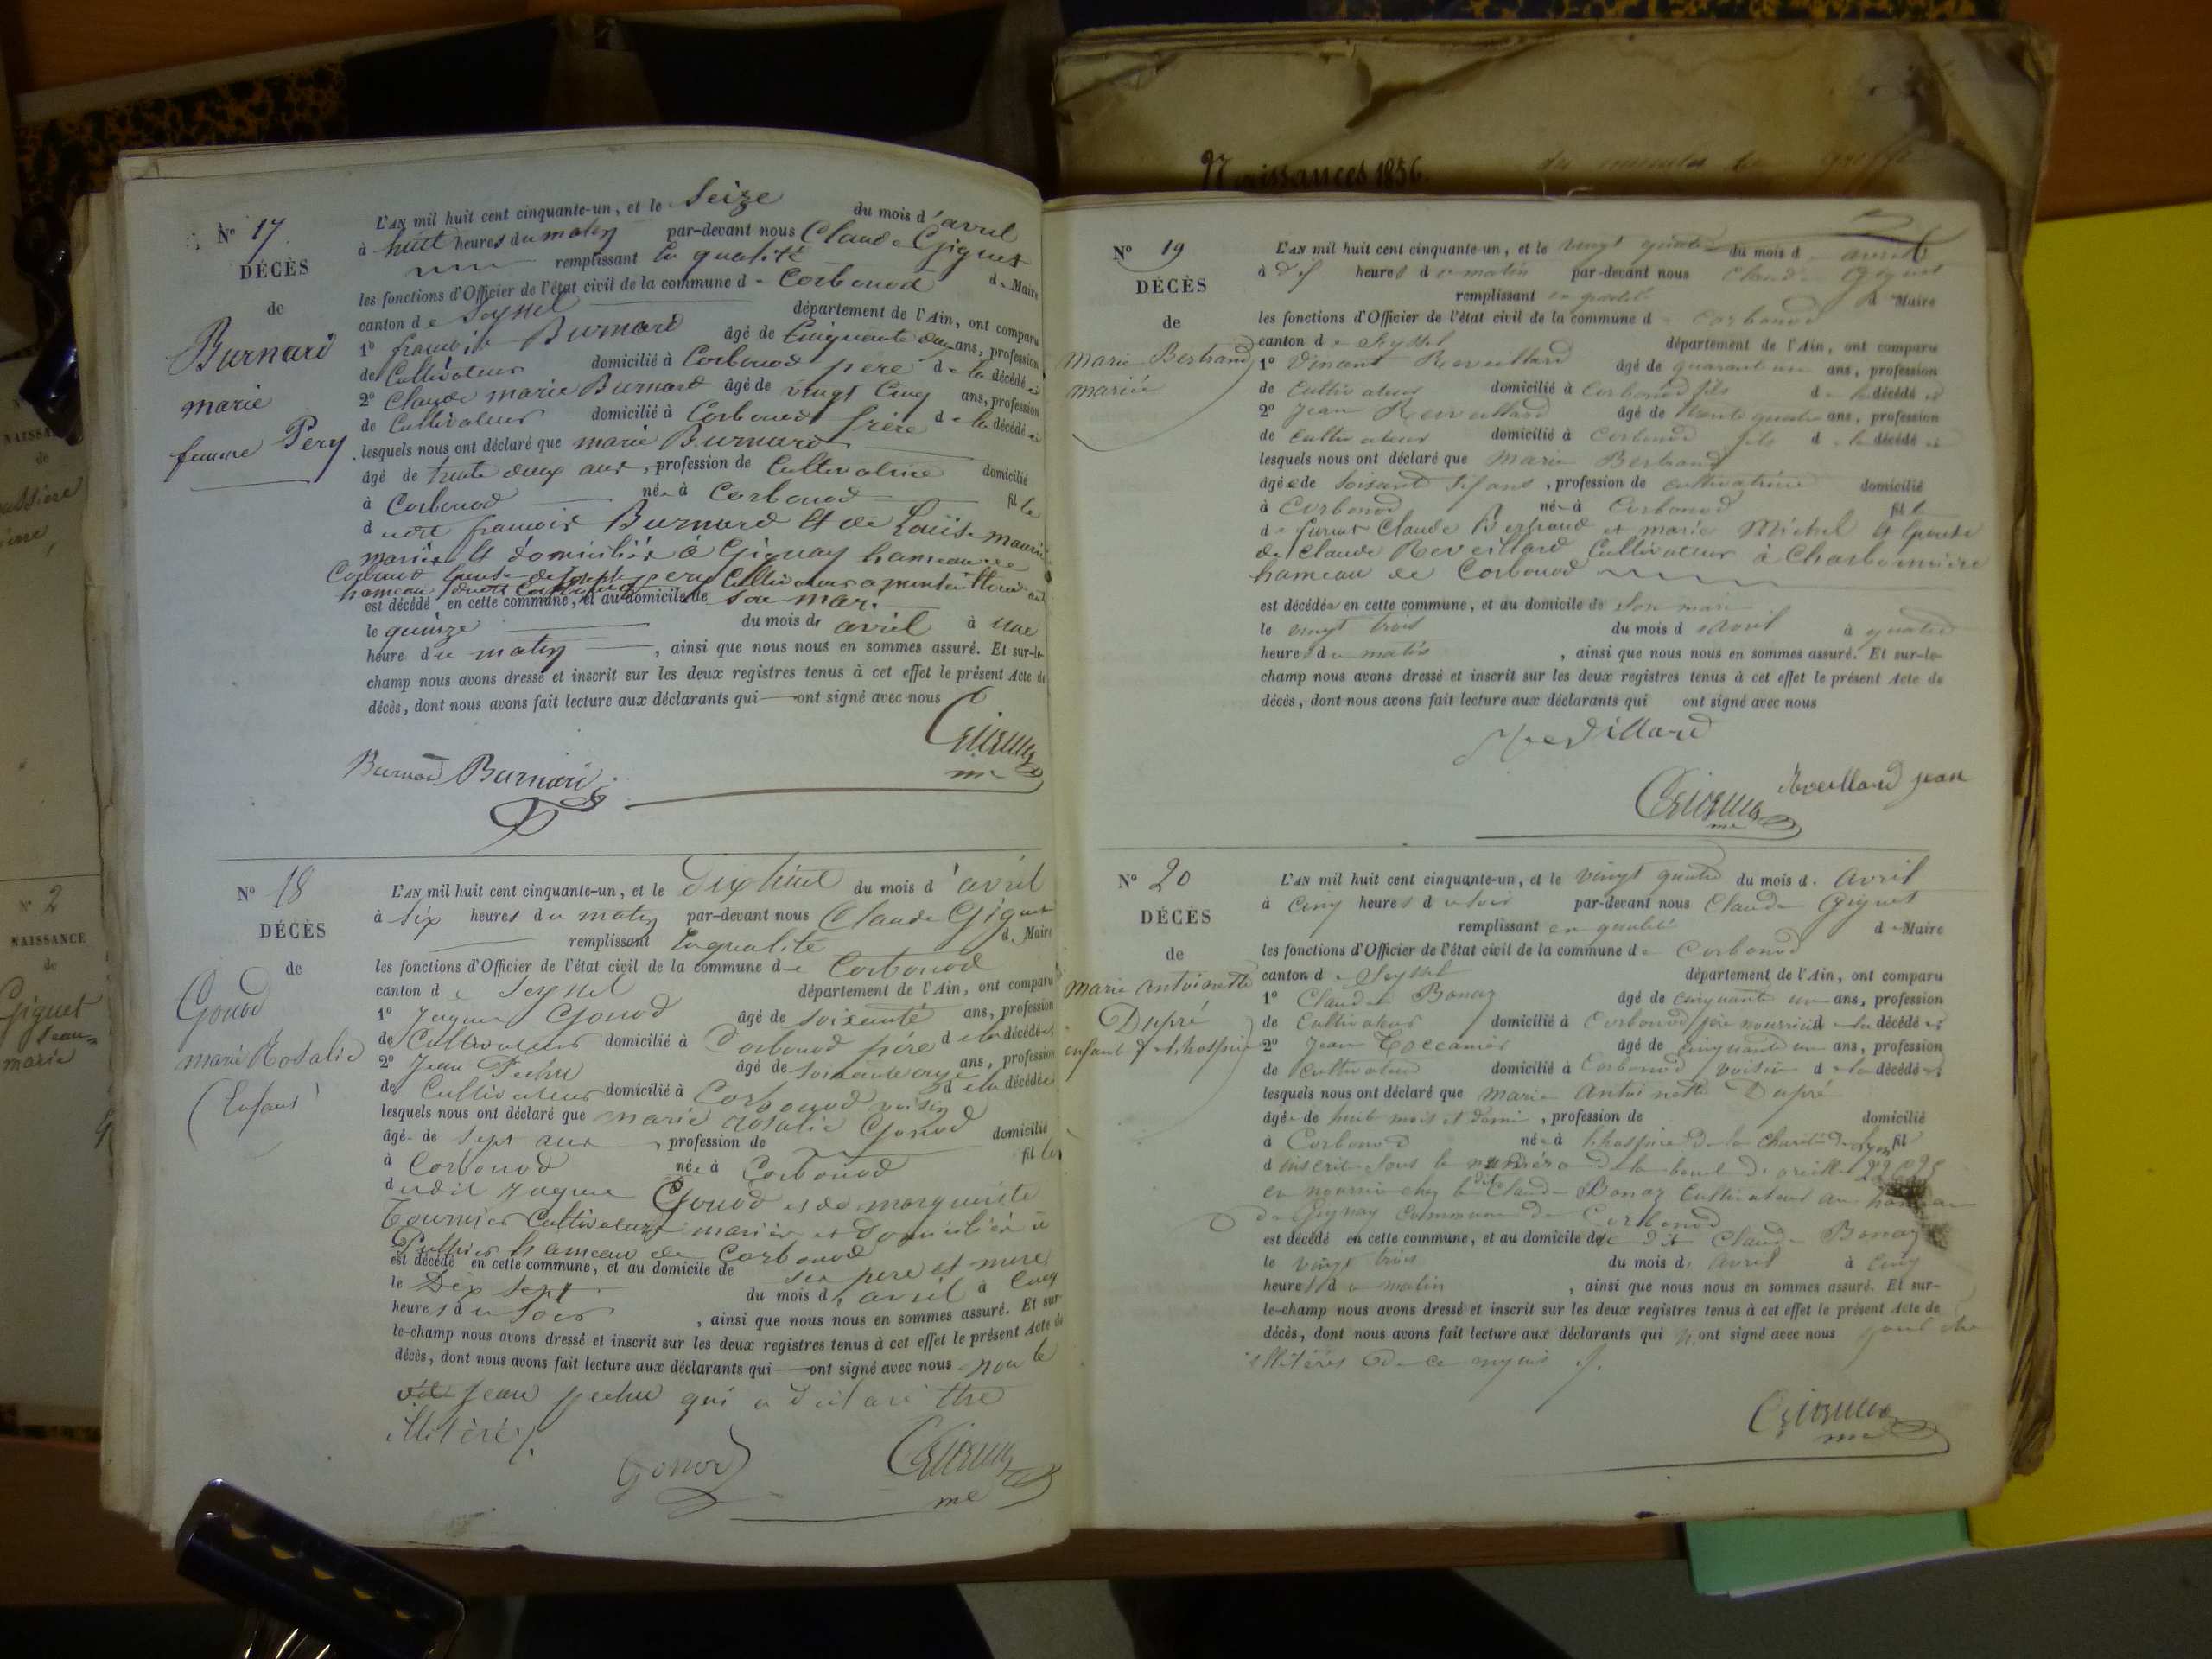 Naissances 1856.
N° 17
DÉCÈS
de
Burnard
marie
femme Pery
L'AN mil huit cent cinquante-un, et le Seize du mois d'avril
à huit heures du matin par-devant nous Claude Giguet
remplissant la qualité de Maire
les fonctions d'Officier de l'état civil de la commune de Corbonod
canton de Seyssel département de l'Ain, ont comparu
1° françois Burnard âgé de Cinquante deux ans, profession
de Cultivateur domicilié à Corbonod père de la décédée
2° Claude marie Burnard âgé de vingt Cinq ans, profession
de Cultivateur domicilié à Corbonod frère de la décédée
lesquels nous ont déclaré que marie Burnard
âgé de trente deux ans, profession de Cultivatrice domicilié
à Corbonod née à Corbonod fille
dudit françois Burnard et de Louise
mariés et domiciliés à Gignay hameau de
Corbonod Epouse de Joseph pery Cultivateur
hameau dudit Corbonod
est décédé en cette commune, et au domicile de son mari
le quinze du mois de avril à une
heure du matin, ainsi que nous nous en sommes assuré. Et sur-le-
champ nous avons dressé et inscrit sur les deux registres tenus à cet effet le présent Acte de
décès, dont nous avons fait lecture aux déclarants qui ont signé avec nous
Burnard Burnard
N° 18
DÉCÈS
de
Gonod
marie Rosalie
(Enfant
L'AN mil huit cent cinquante-un, et le Dix huit du mois d'avril
à six heures du matin par-devant nous Claude Giguet
remplissant la qualité de Maire
les fonctions d'Officier de l'état civil de la commune de Corbonod
canton de Seyssel département de l'Ain, ont comparu
1° Jaques Gonod âgé de soixante ans, profession
de Cultivateur domicilié à Corbonod père de la décédée
2° Jean Pechu âgé de soixante ans, profession
de Cultivateur domicilié à Corbonod voisin de la décédée
lesquels nous ont déclaré que marie rosalie Gonod
âgé de sept ans, profession de domicilié
à Corbonod née à Corbonod fille
dudit Jaques Gonod et de marguerite
Tournier Cultivateurs mariés et domiciliés à
hameau de Corbonod
est décédé en cette commune, et au domicile de ses pere et mere
le Dix sept du mois d'avril à Cinq
heures du soir, ainsi que nous nous en sommes assuré. Et sur-
le-champ nous avons dressé et inscrit sur les deux registres tenus à cet effet le présent Acte de
décès, dont nous avons fait lecture aux déclarants qui ont signé avec nous non le
dit Jean pechu qui a déclaré être
illitéré
Gonod
N° 19
DÉCÈS
de
marie Bertrand
mariée
L'AN mil huit cent cinquante-un, et le vingt quatre du mois d avril
à dix heures du matin par-devant nous Claude Giguet
remplissant en qualité de Maire
les fonctions d'Officier de l'état civil de la commune d Corbonod
canton de Seyssel département de l'Ain, ont comparu
1° Vincent Reveillard âgé de quarante un ans, profession
de Cultivateur domicilié à Corbonod fils de la décédée
2° Jean Reveillard âgé de trente quatre ans, profession
de Cultivateur domicilié à Corbonod fils de la décédée
lesquels nous ont déclaré que Marie Bertrand
âgée de soixante dix ans, profession de cultivatrice domicilié
à Corbonod née à Corbonod fille
de Claude Bertrand et marie Michel et Epouse
de Claude Reveillard Cultivateur à Charbonnière
hameau de Corbonod
est décédée en cette commune, et au domicile de son mari
le vingt trois du mois d avril à quatre
heures du matin, ainsi que nous nous en sommes assuré. Et sur-le-
champ nous avons dressé et inscrit sur les deux registres tenus à cet effet le présent Acte de
décès, dont nous avons fait lecture aux déclarants qui ont signé avec nous
Reveillard
Reveillard jean
N° 20
DÉCÈS
de
marie antoinette
Dupré
enfant de l'hospice
L'AN mil huit cent cinquante-un, et le vingt quatre du mois d. avril
à cinq heures du soir par-devant nous Claude Giguet
remplissant en qualité de Maire
les fonctions d'Officier de l'état civil de la commune de Corbonod
canton de Seyssel département de l'Ain, ont comparu
1° Claude Bonaz âgé de cinquante un ans, profession
de Cultivateur domicilié à Corbonod père nourricier de la décédée
2° Jean Toccanier âgé de cinquante un ans, profession
de Cultivateur domicilié à Corbonod voisin de la décédée
lesquels nous ont déclaré que Marie Antoinette Dupré
âgée de huit mois et demi, profession de domicilié
à Corbonod née à l'hospice de la Charité de Lyon fil
d inscrit sous le numéro de la boucle d'oreille
en nourrice chez le dit Claude Bonaz Cultivateur au hameau
de Gignay Commune de Corbonod
est décédé en cette commune, et au domicile du dit Claude Bonaz
le vingt trois du mois d'avril à Cinq
heures du matin, ainsi que nous nous en sommes assuré. Et sur-
le-champ nous avons dressé et inscrit sur les deux registres tenus à cet effet le présent Acte de
décès, dont nous avons fait lecture aux déclarants qui n'ont signé avec nous pour être
illitérés de ce enquis
N° 2
NAISSANCE
de
Giguet
Jean-
marie